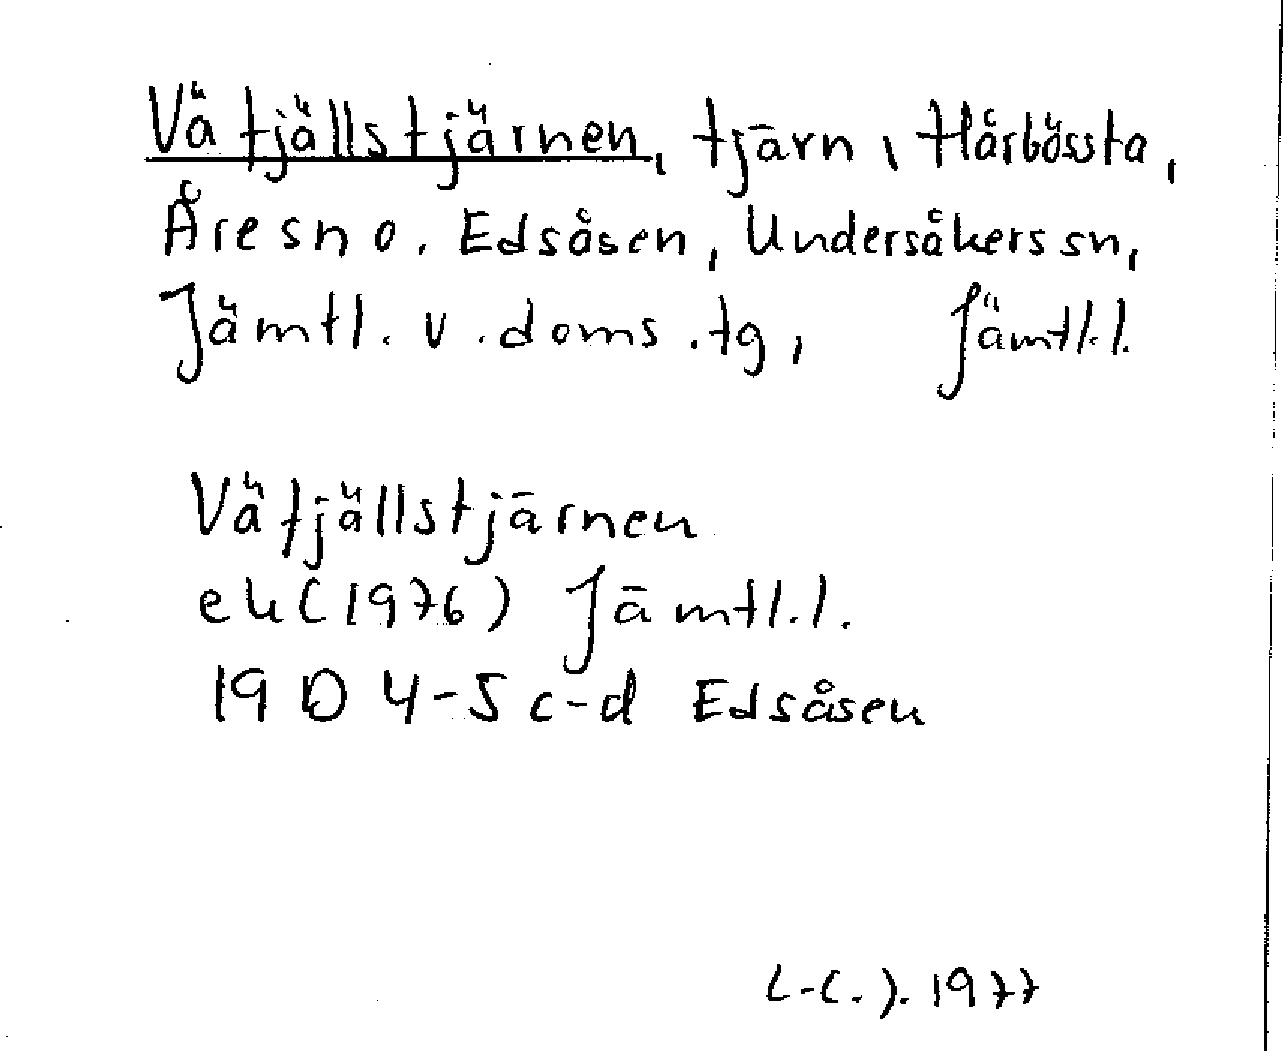 Vätjällstjärnen, tjärn, Hårbössta,
Åre sn o. Edsåsen, Undersåkers sn,
Jämtl. v. doms. tg, Jämtl.l.
Vätjällstjärnen
ek (1976) Jämtl.l.
19 D 4-5 c-d Edsåsen
L-C.J. 1977